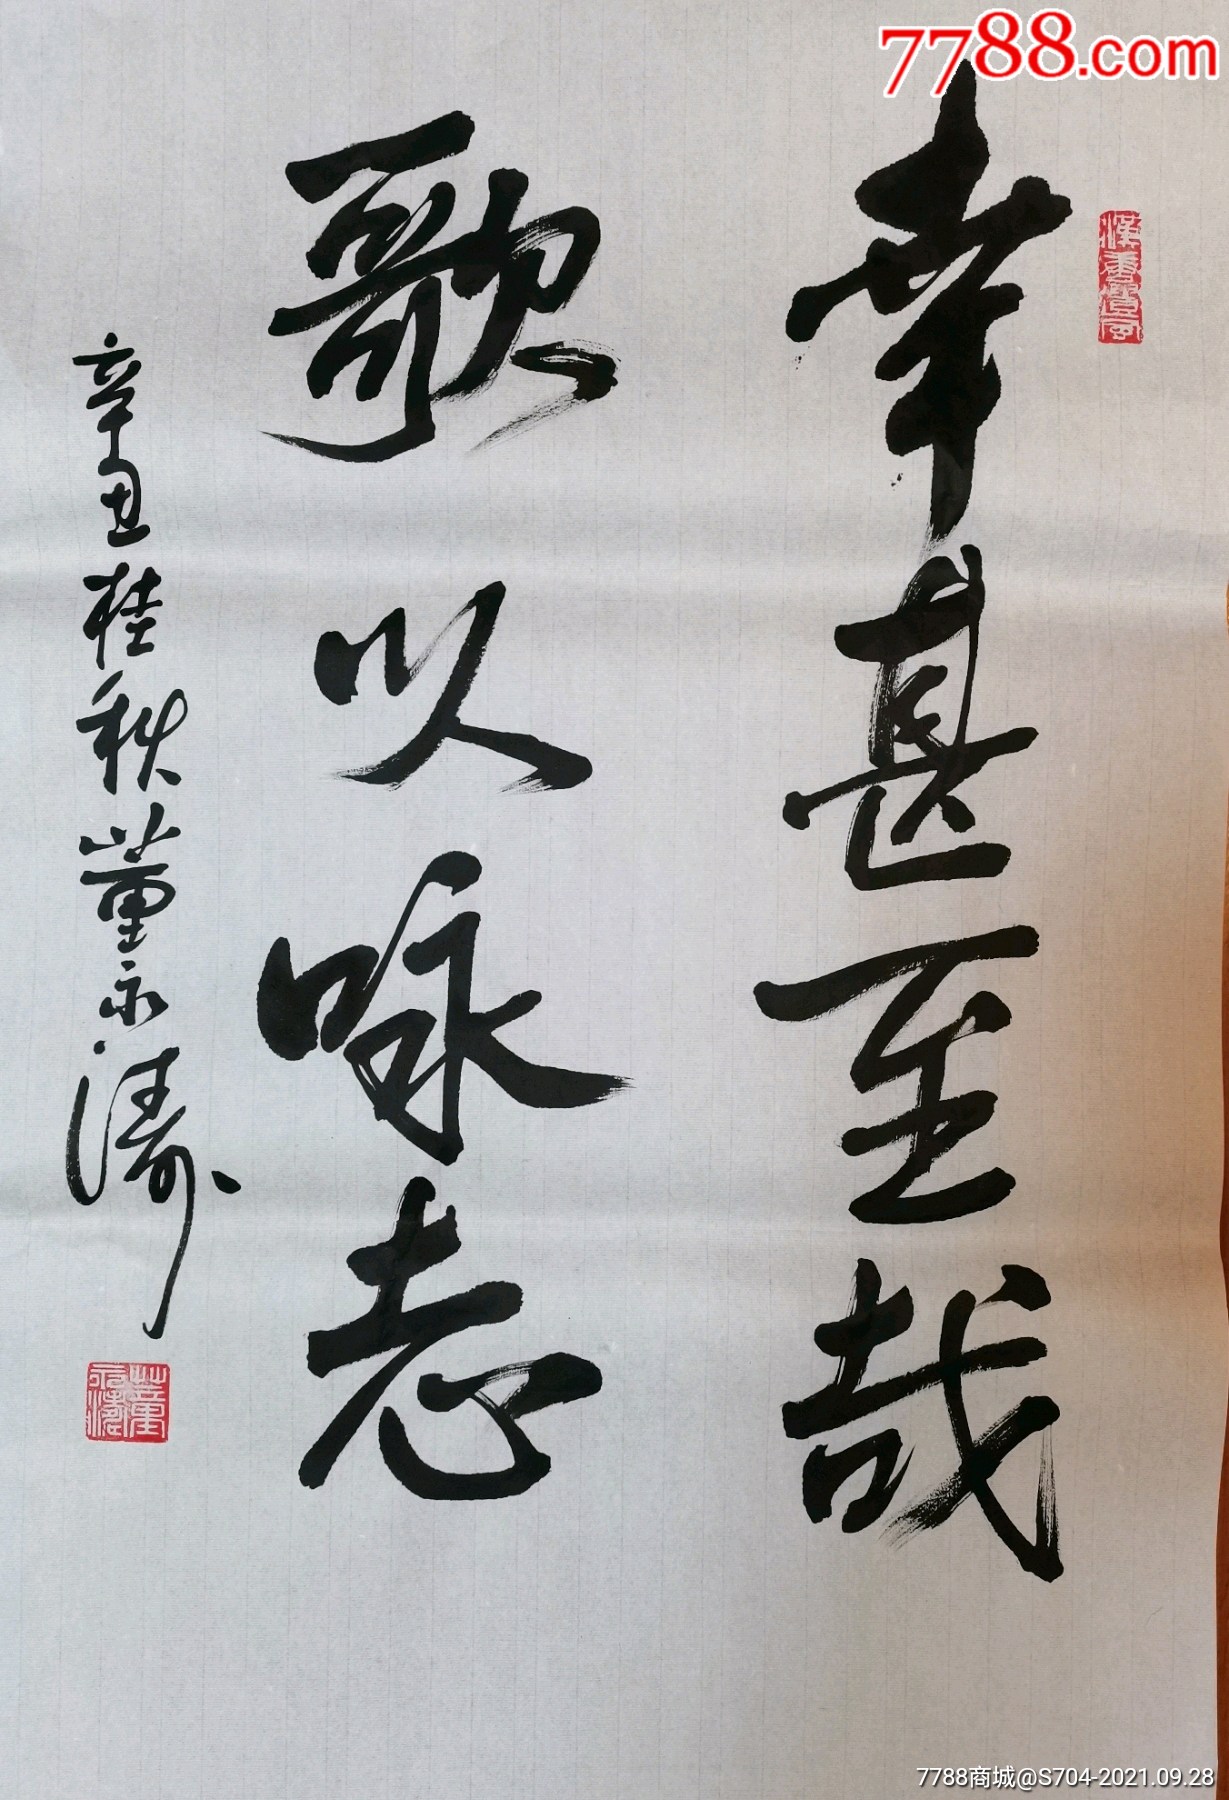 7788.com
幸甚至哉
歌以咏志
辛丑桂秋董永涛
董永涛
7788商城@S704-2021.09.28